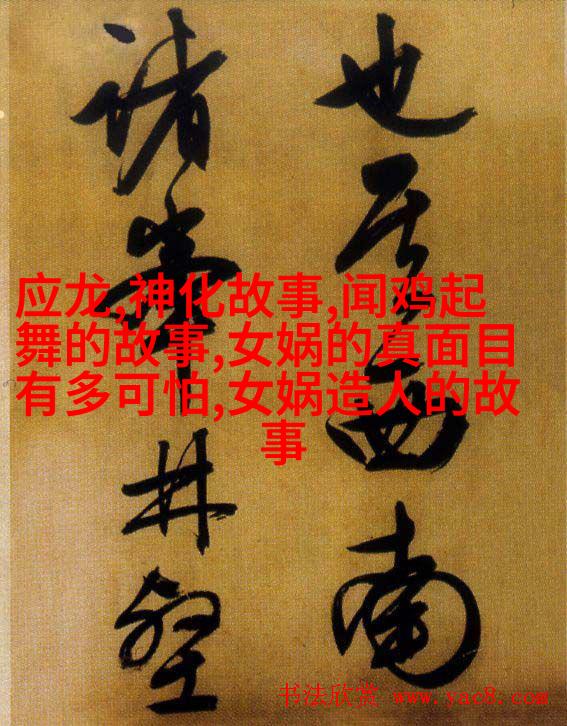 也其西南
诸峰林壑
应龙,神化故事,闻鸡起
舞的故事,女娲的真面目
有多可怕,女娲造人的故
事
书法欣赏 www.yac8.com